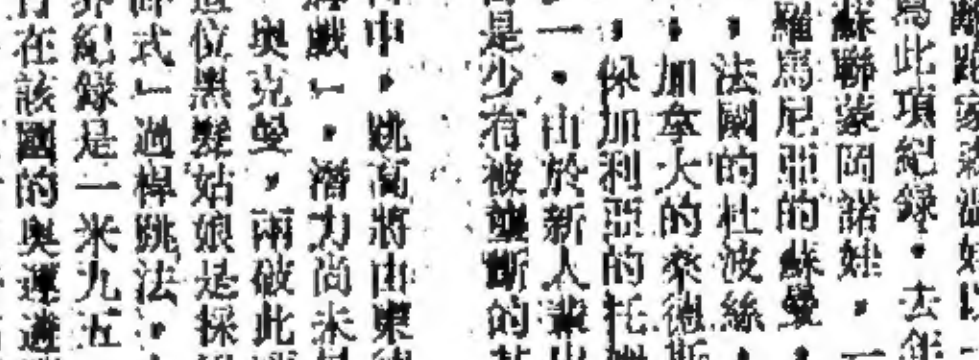 為此項紀錄。去年
蘇聯蒙岡諾娃,一
羅馬尼亞的蘇曼,
,法國的杜波絲,
,加拿大的來德斯
,保加利亞的托
一。由於新人輩出
是少有被壟斷的
中,跳高將由東德
戲」。潛力尚未
奥克曼,兩破此
這位黑髮姑娘是採
式」過桿跳法,
界紀錄是一米九五
在該國的奧運選